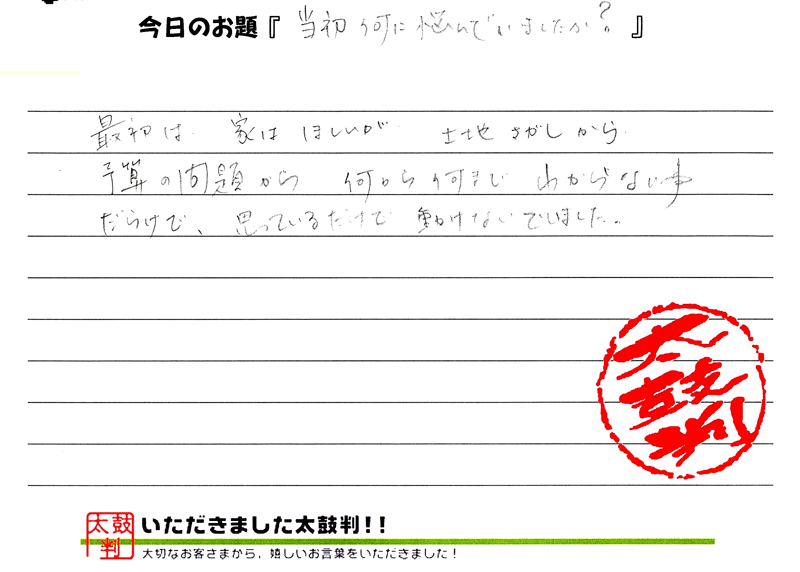 今日のお題『 当初何に悩んでいましたか? 』
最初は 家はほしいが 土地さがしから
予算の問題から 何から何まで わからない事
だらけで、思っているだけで 動けないでいました。
太鼓判
太鼓判
いただきました太鼓判!!
大切なお客さまから、嬉しいお言葉をいただきました!